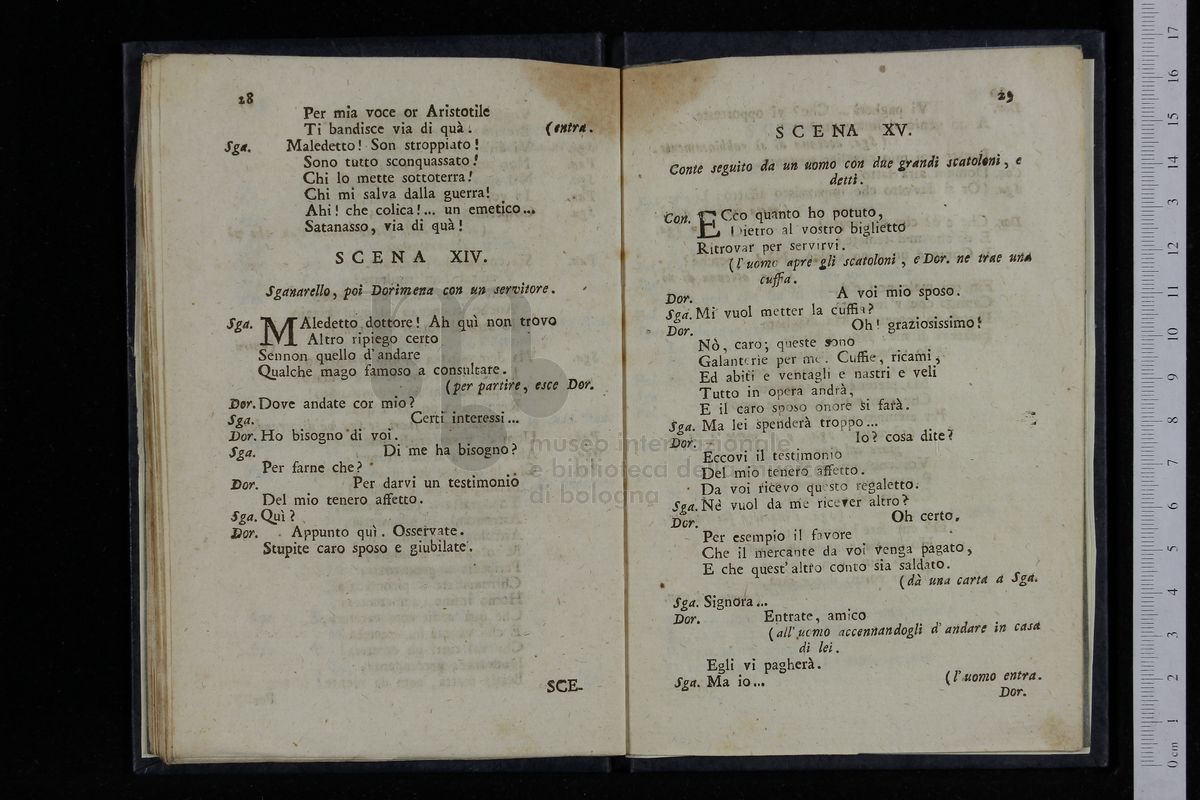 28
Per mia voce or Aristotile
Ti bandisce via di quà. (entra.
Sga. Maledetto! Son stroppiato!
Sono tutto sconquassato!
Chi lo mette sottoterra!
Chi mi salva dalla guerra!
Ahi! che colica!... un emetico...
Satanasso, via di quà!
SCENA XIV.
Sganarello, poi Dorimena con un servitore.
Sga. MAledetto dottore! Ah quì non trovo
Altro ripiego certo
Sennon quello d'andare
Qualche mago famoso a consultare.
(per partire, esce Dor.
Dor. Dove andate cor mio?
Sga. Certi interessi...
Dor. Ho bisogno di voi.
Sga. Di me ha bisogno?
Per farne che?
Dor. Per darvi un testimonio
Del mio tenero affetto.
Sga. Quì?
Dor. Appunto quì. Osservate.
Stupite caro sposo e giubilate.
SCE-
29
SCENA XV.
Conte seguito da un uomo con due grandi scatoloni, e
detti.
Con. ECco quanto ho potuto,
Dietro al vostro biglietto
Ritrovar per servirvi.
(l'uomo apre gli scatoloni, e Dor. ne trae una
cuffa.
Dor. A voi mio sposo.
Sga. Mi vuol metter la cuffia?
Dor. Oh! graziosissimo!
Nò, caro; queste sono
Galanterie per me. Cuffie, ricami,
Ed abiti e ventagli e nastri e veli
Tutto in opera andrà,
E il caro sposo onore si farà.
Sga. Ma lei spenderà troppo...
Dor. Io? cosa dite?
Eccovi il testimonio
Del mio tenero affetto.
Da voi ricevo questo regaletto.
Sga. Nè vuol da me ricever altro?
Dor. Oh certo.
Per esempio il favore
Che il mercante da voi venga pagato,
E che quest'altro conto sia saldato.
(dà una carta a Sga.
Sga. Signora...
Dor. Entrate, amico
(all'uomo accennandogli d'andare in casa
di lei.
Egli vi pagherà.
Sga. Ma io... (l'uomo entra.
Dor.
museo internazionale
e biblioteca della musica
di bologna
0 cm 1 2 3 4 5 6 7 8 9 10 11 12 13 14 15 16 17